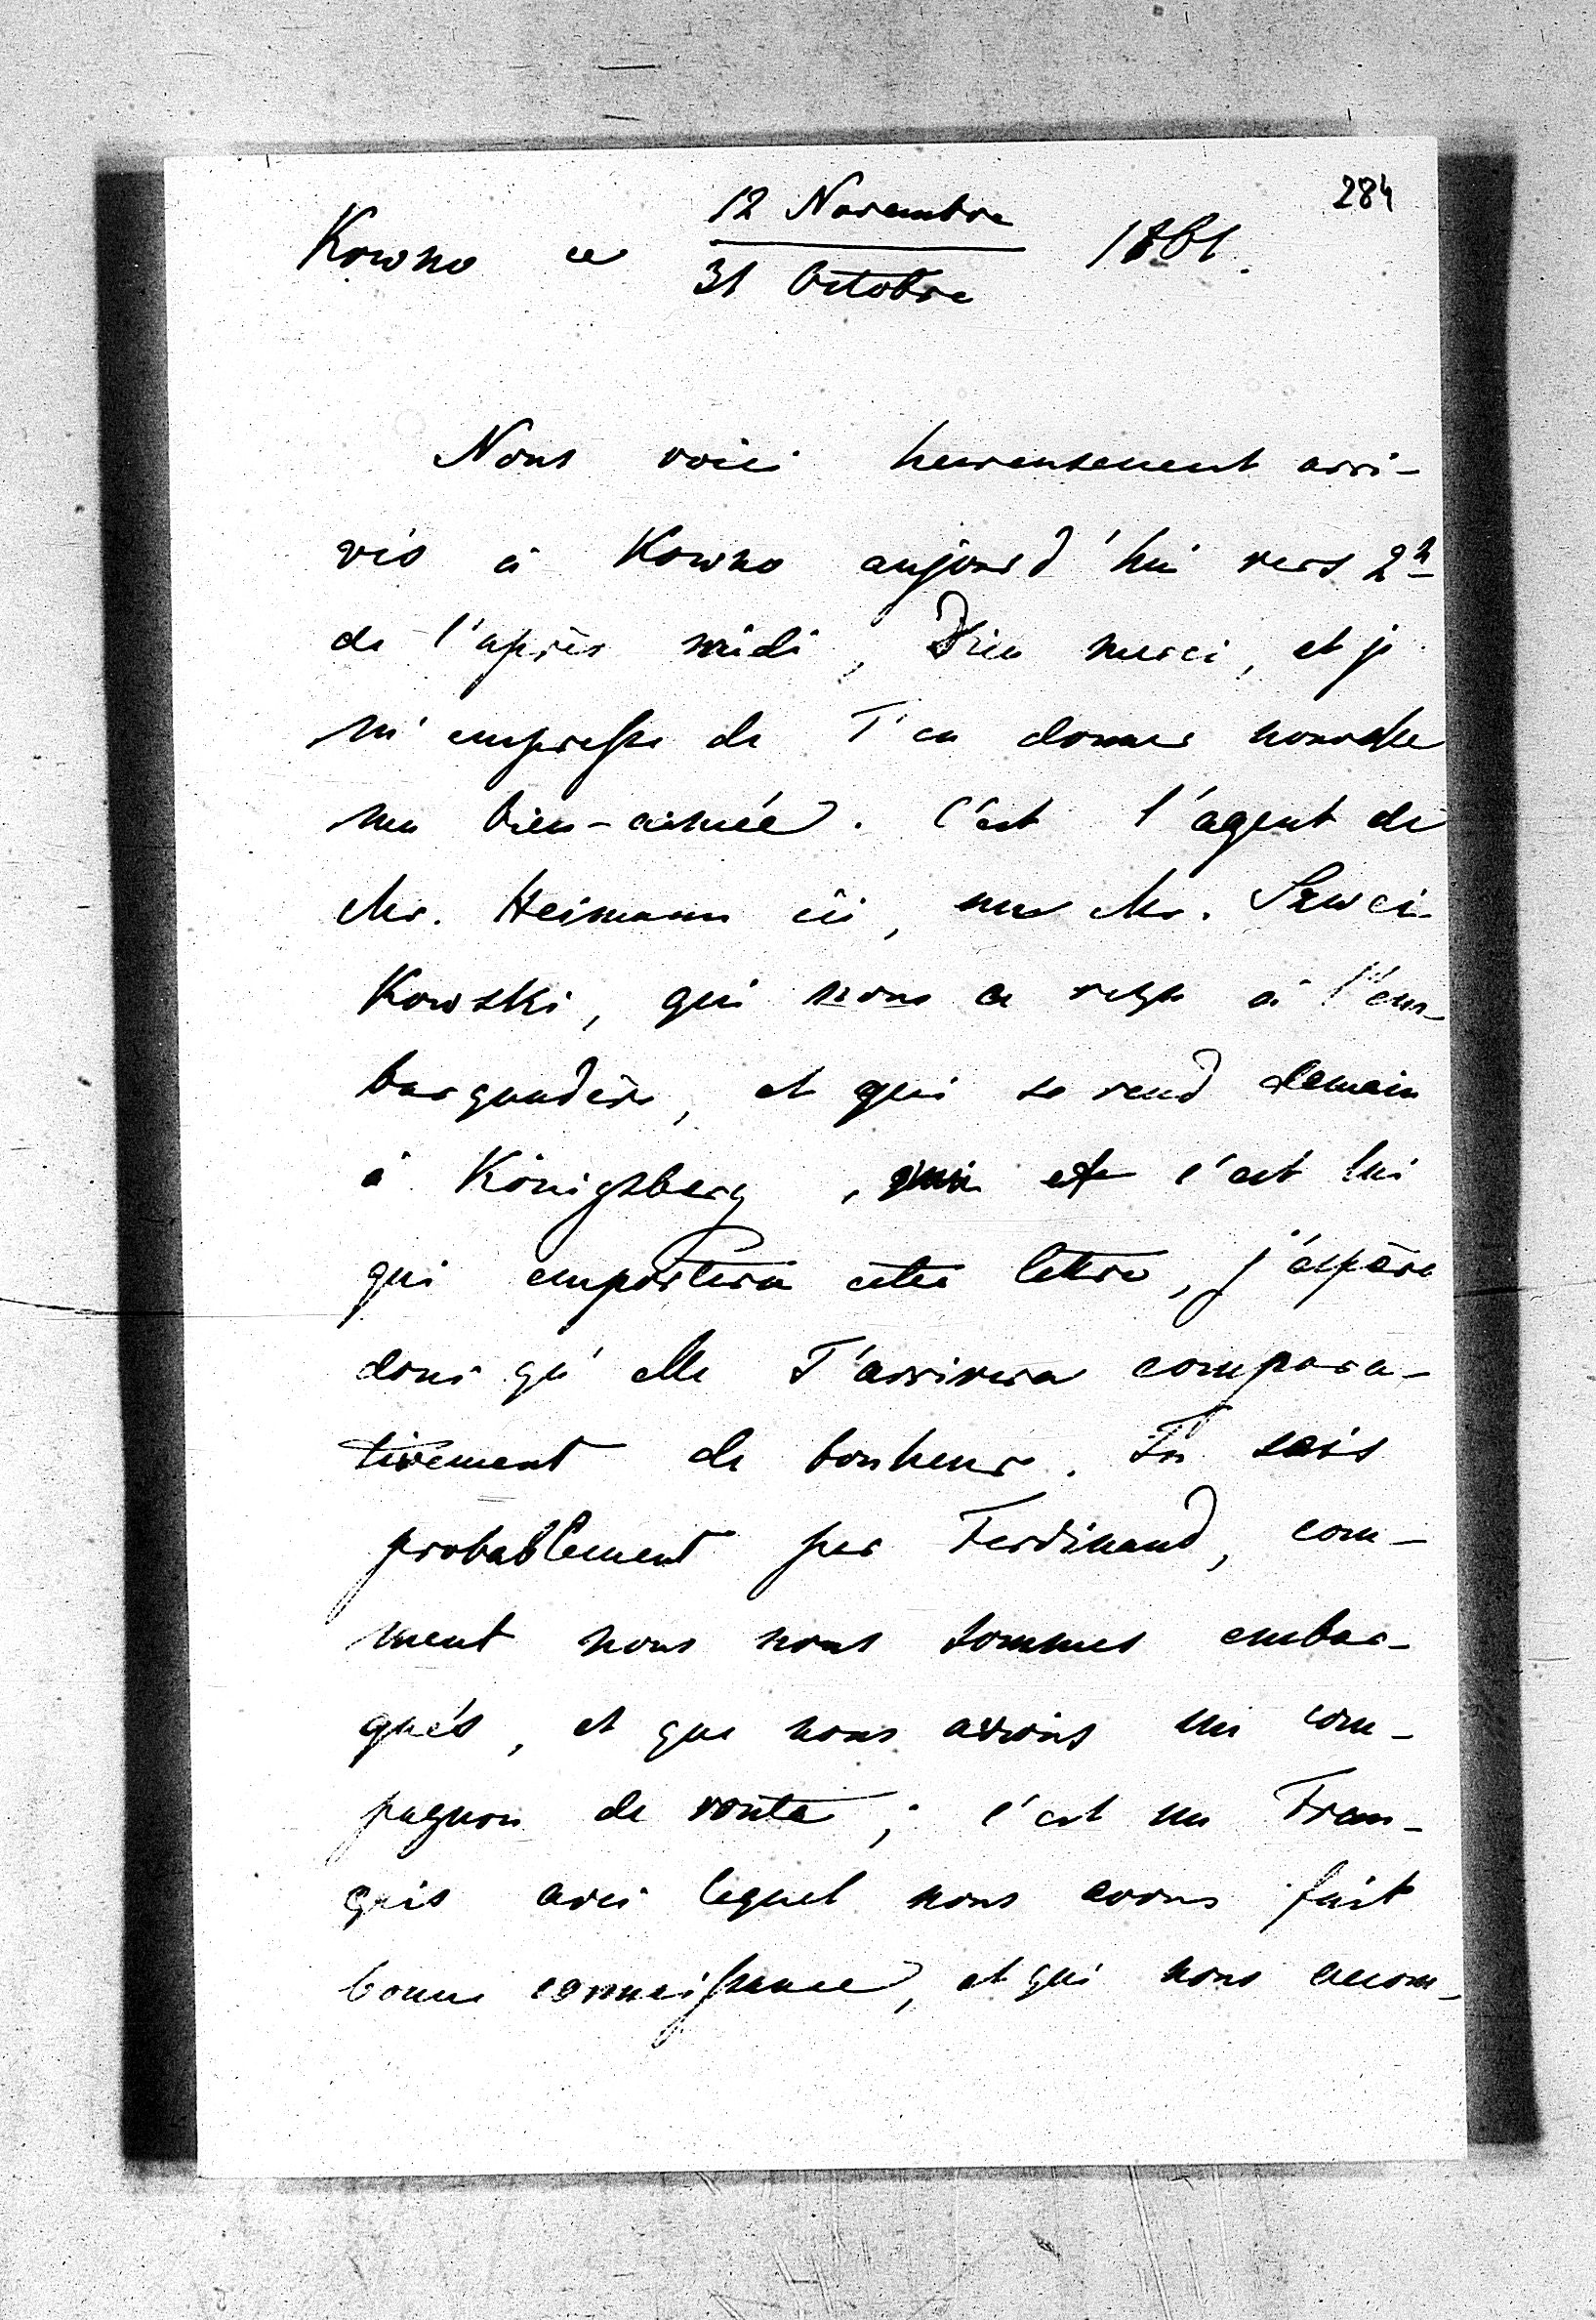 284
Kowno ce 12 Novembre / 31 Octobre 1861.
Nous voici heureusement arri-
vés à Kowno aujourd'hui vers 2h
de l'après midi, Dieu merci, et je
m'empresse de T'en donner nouvelle
ma bien-aimée. C'est l'agent de
Mr. Heimann ici, un Mr. Szwei-
kowski, qui nous a reçu à l'em-
barquadère, et qui se rend demain
à Königsberg, et c'est lui
qui emportera cette lettre, j'éspère
donc qu'elle T'arrivera compara-
tivement de bonheure. Tu sais
probablement par Ferdinand, com-
ment nous nous sommes embar-
qués, et que nous avions un com-
pagnon de route; c'est un Fran-
çais avec lequel nous avons fait
bonne connaissance, et qui nous accom-